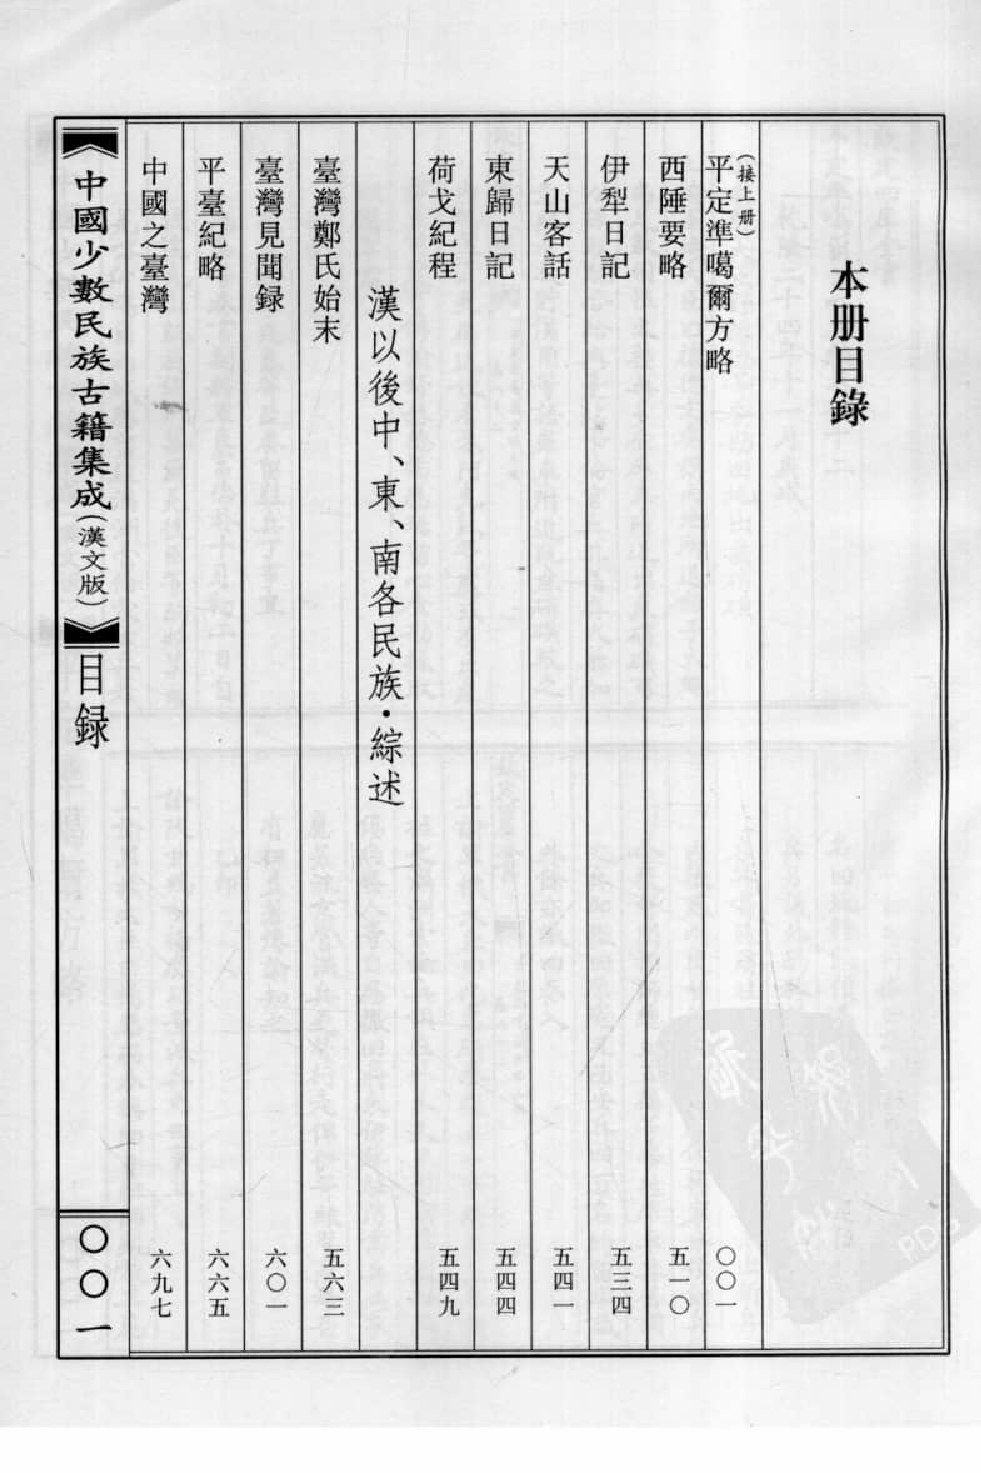 本册目錄
(接上册)
平定準噶爾方略 〇〇一
西陲要略 五一〇
伊犁日記 五三四
天山客話 五四一
東歸日記 五四四
荷戈紀程 五四九
漢以後中、東、南各民族·綜述
臺灣鄭氏始末 五六三
臺灣見聞録 六〇一
平臺紀略 六六五
中國之臺灣 六九七
《中國少數民族古籍集成(漢文版)》目録 〇〇一